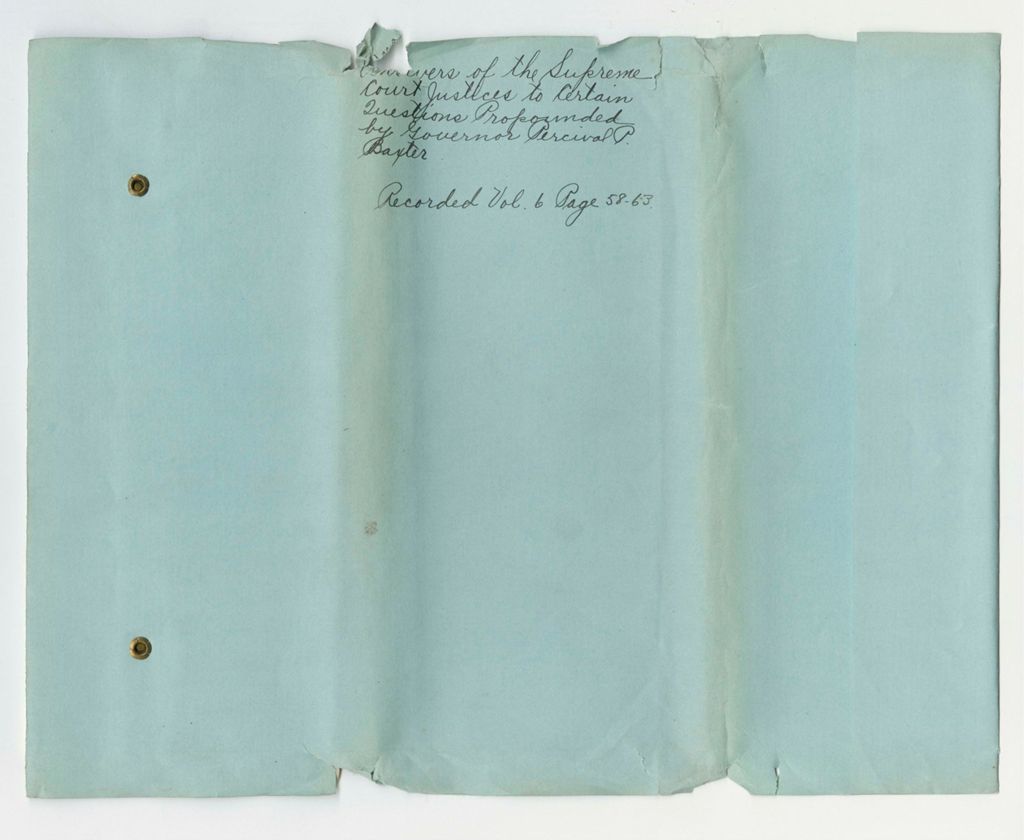 Answers of the Supreme
Court Justices to Certain
Questions Propounded
by Governor Percival P.
Baxter
Recorded Vol. 6 Page 58-63.